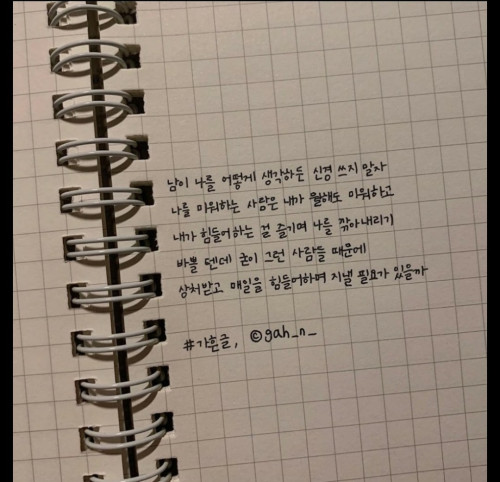 남이 나를 어떻게 생각하든 신경 쓰지 말자
나를 미워하는 사람은 내가 뭘해도 미워하고
내가 힘들어하는 걸 즐기며 나를 깎아내리기
바쁠 텐데 굳이 그런 사람들 때문에
상처받고 매일을 힘들어하며 지낼 필요가 있을까
#가흔글, ©gah_n_